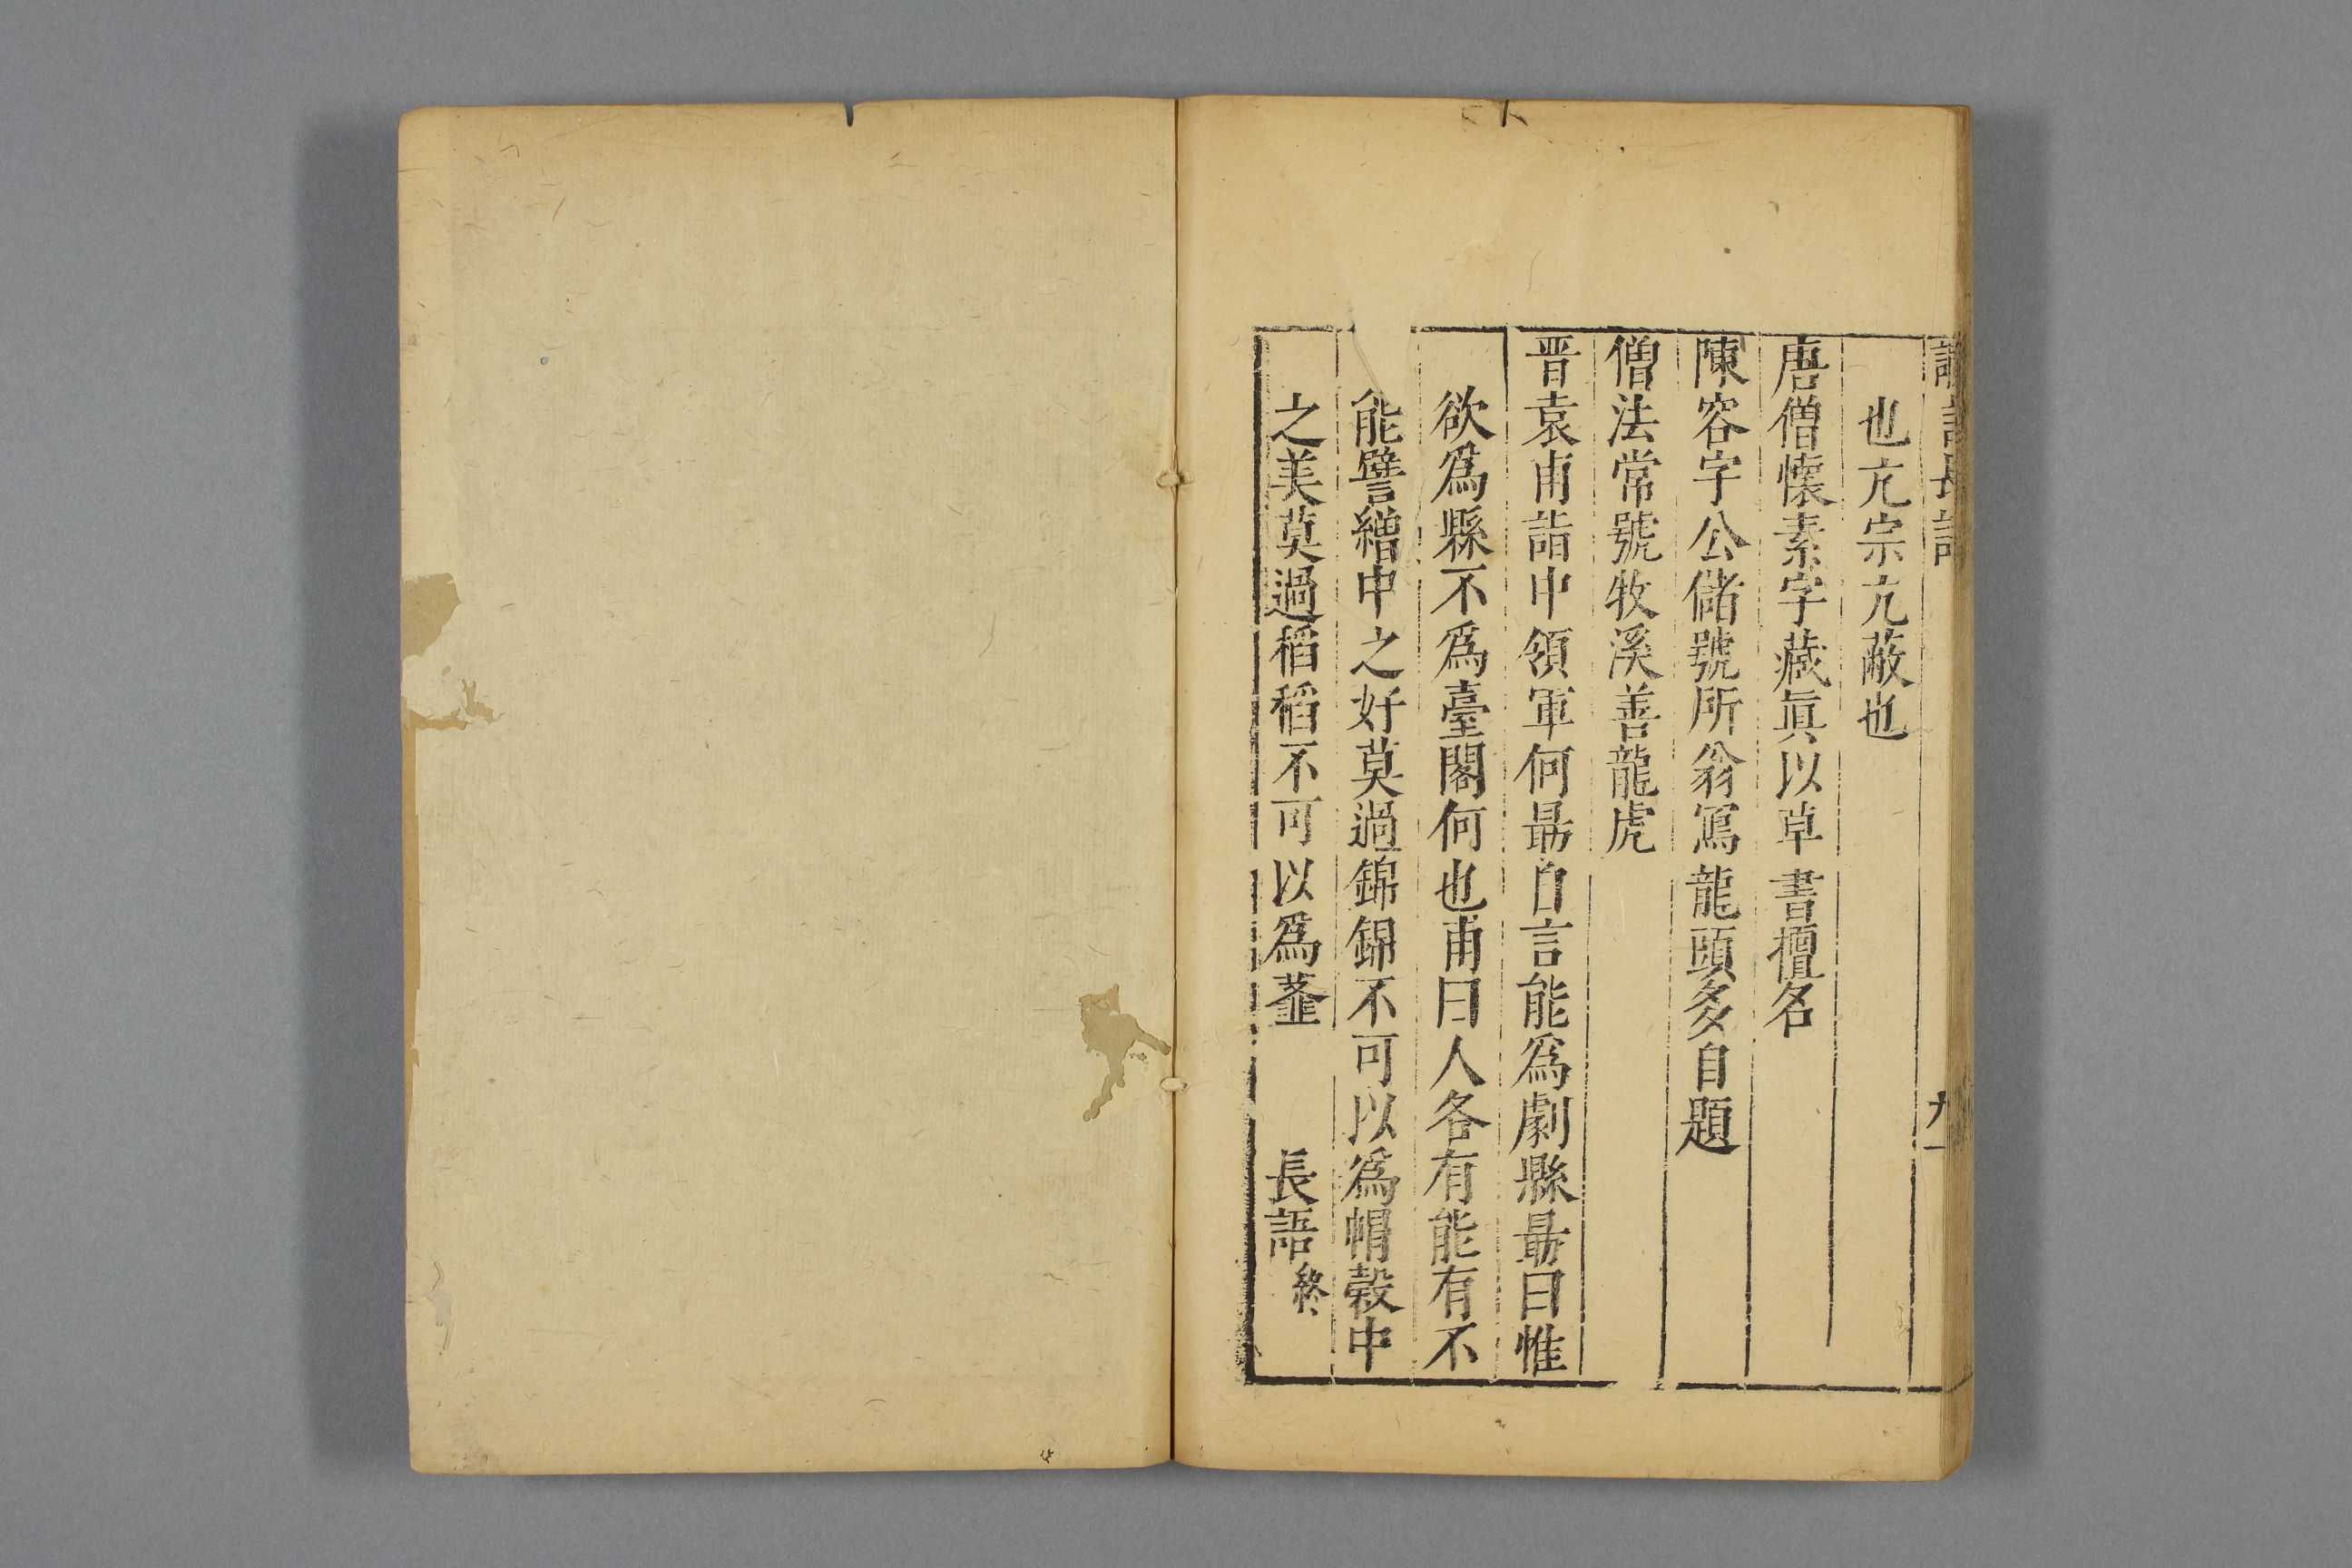 也亢宗亢蔽也
唐僧懷素字藏眞以草書擅名
陳容字公儲號所翁寫龍頭多自題
僧法常號牧溪善龍虎
晋袁甫詣中領軍何朂自言能爲劇縣朂曰惟
欲爲縣不爲臺閣何也甫曰人各有能有不
能譬繒中之好莫過錦錦不可以爲㡓穀中
之美莫過稻稻不可以爲虀　長語終